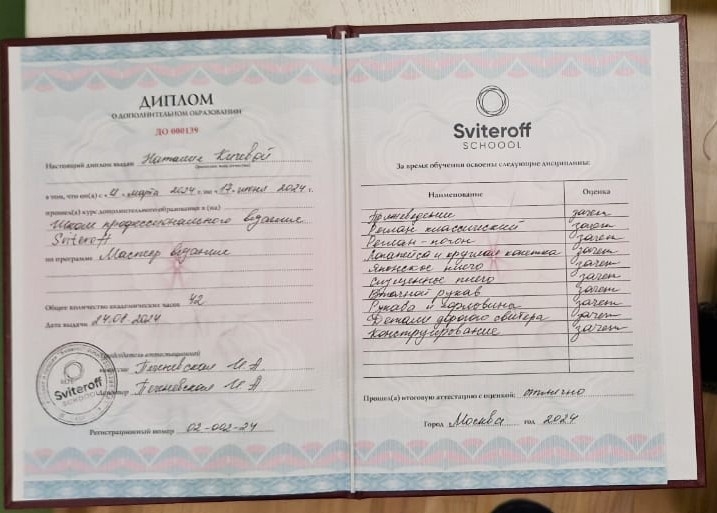 ДИПЛОМ
О ДОПОЛНИТЕЛЬНОМ ОБРАЗОВАНИИ
ДО 000139
Настоящий диплом выдан Наталии
в том, что он(а) с «11» марта 2024 г. по «17» июня 2024 г.
прошел(а) курс дополнительного образования в (на)
Школе профессионального вязания
Sviteroff
по программе Мастер вязания
Общее количество академических часов 42
Дата выдачи 24.08.2024
аттестационной
И.А.
И.А.
Sviteroff
SCHOOOL
Регистрационный номер 02-002-24
Sviteroff
SCHOOOL
За время обучения освоены следующие дисциплины:
Наименование Оценка
зачет
Реглан классический зачет
Реглан - погон зачет
и круглая кокетка зачет
Японское плечо зачет
Спущенное плечо зачет
Втачной рукав зачет
Рукава и горловина зачет
Детали дорогого свитера зачет
Конструирование зачет
Прошел(а) итоговую аттестацию с оценкой: отлично
Город Москва год 2024